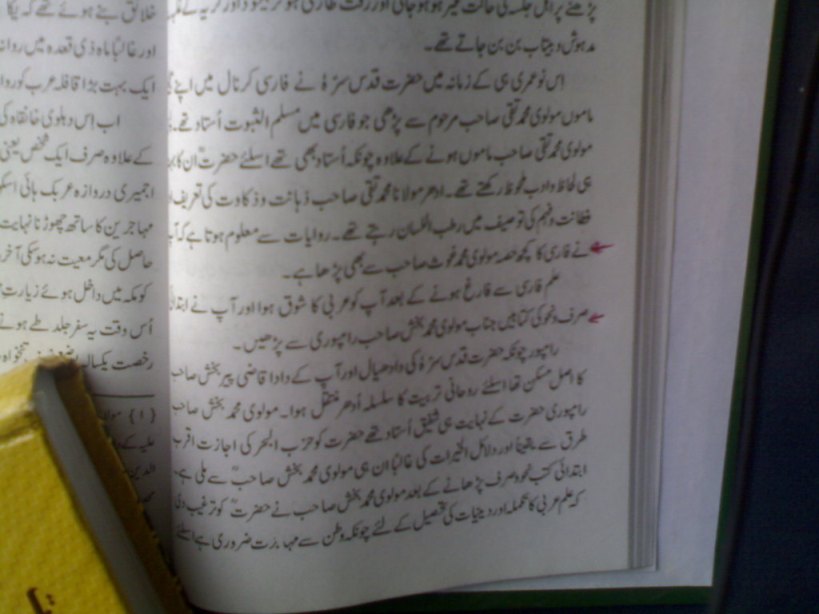 پڑھنے پر اہل جلسہ کی حالت غیر ہو ہو جاتی اور رقت طاری ہو کر
مدہوش و بیتاب بن بن جاتے تھے۔
اس نوعمری ہی کے زمانہ میں حضرت قدس سرہٗ نے فارسی کرنال میں اپنے
ماموں مولوی محمد تقی صاحب مرحوم سے پڑھی جو فارسی میں مسلم الثبوت اُستاد تھے۔
مولوی محمد تقی صاحب ماموں ہونے کے علاوہ چونکہ اُستاد بھی تھے اسلئے حضرتؒ ان کا
ہی لحاظ و ادب ملحوظ رکھتے تھے۔ ادھر مولانا محمد تقی صاحب ذہانت و ذکاوت کی تعریف
فطانت و فہم کی توصیف میں رطب اللسان رہتے تھے۔ روایات سے معلوم ہوتا ہے کہ آپ
نے فارسی کا کچھ حصہ مولوی محمد غوث صاحب سے بھی پڑھا ہے۔
علم فارسی سے فارغ ہونے کے بعد آپ کو عربی کا شوق ہوا اور آپ نے ابتدائی
صرف و نحو کی کتابیں جناب مولوی محمد بخش صاحب رامپوری سے پڑھیں۔
رامپور چونکہ حضرت قدس سرہٗ کی دادھیال اور آپ کے دادا قاضی پیر بخش صاحب
کا اصل مسکن تھا اسلئے روحانی تربیت کا سلسلہ اُدھر منتقل ہوا۔ مولوی محمد بخش صاحب
رامپوری حضرت کے نہایت ہی شفیق اُستاد تھے حضرت کو حزب البحر کی اجازت اقرب
طرق سے یقیناً اور دلائل الخیرات کی غالباً ان ہی مولوی محمد بخش صاحبؒ سے ملی ہے۔
ابتدائی کتب نحو و صرف پڑھانے کے بعد مولوی محمد بخش صاحب نے حضرتؒ کو ترغیب دی
کہ علم عربی کا تکملہ اور دینیات کی تحصیل کے لئے چونکہ وطن سے مہاجرت ضروری ہے اسلئے
خلائق بنے ہوئے تھے کہ یکا
اور غالباً ماہ ذی قعدہ میں روانہ
ایک بہت بڑا قافلہ عرب کو روا
اب اس دہلوی خانقاہ کی
کے علاوہ صرف ایک شخص یعنی
اجمیری دروازہ عربک ہائی اسکو
مہاجرین کا ساتھ چھوڑنا نہایت
حاصل کی مگر معیت نہ ہوسکی آخر
کو مکہ میں داخل ہوئے زیارت
اُس وقت یہ سفر جلد طے ہونے
رخصت یکسال
{ ۱ }